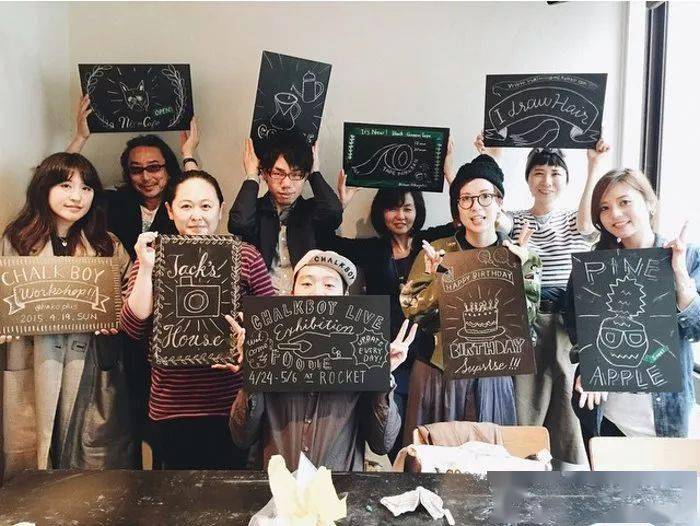 OPEN!
Www.
I draw Hair
It's New! Black Green Tape
CHALKBOY
CHALK BOY
Workshop!!
@hiko plus
2015 4.19. SUN
Jack's
House
CHALKBOY LIVE
Exhibition
FOODIE
4/24-5/6 AT ROCKET
UPDATES
EVERY
DAY!
HAPPY BIRTHDAY
BIRTHDAY
Suprise!!!
PINE
APPLE